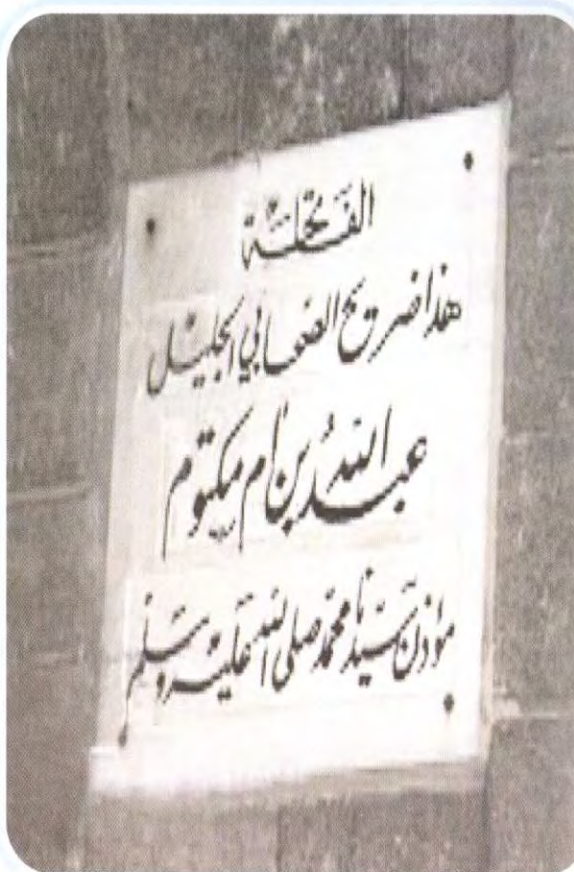 الفاتحة
هذا ضريح الصحابي الجليل
عبد الله بن أم مكتوم
مؤذن سيدنا محمد صلى الله عليه وسلم